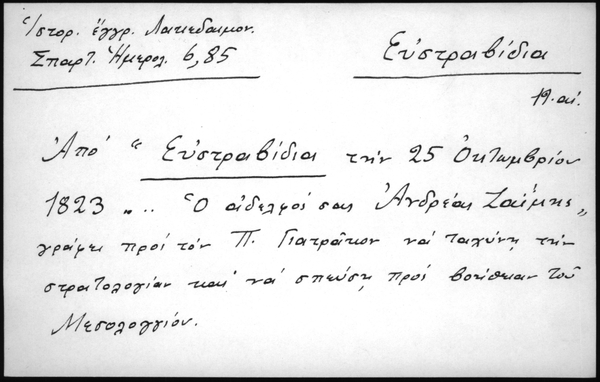 Ἱστορ. ἔγγρ. Λακεδαιμον.
Σπαρτ. Ἡμερολ. 6, 85
Εὐστραβίδια
19. αἰ.
Ἀπό " Εὐστραβίδια τὴν 25 Ὀκτωμβρίου
1823 „ .. "Ὁ ἀδελφός σας Ἀνδρέας Ζαΐμης„
γράφει πρός τόν Π. Γιατράκον νά ταχύνῃ τήν
στρατολογίαν καί νά σπεύσῃ πρός βοήθειαν τοῦ
Μεσολογγίου.